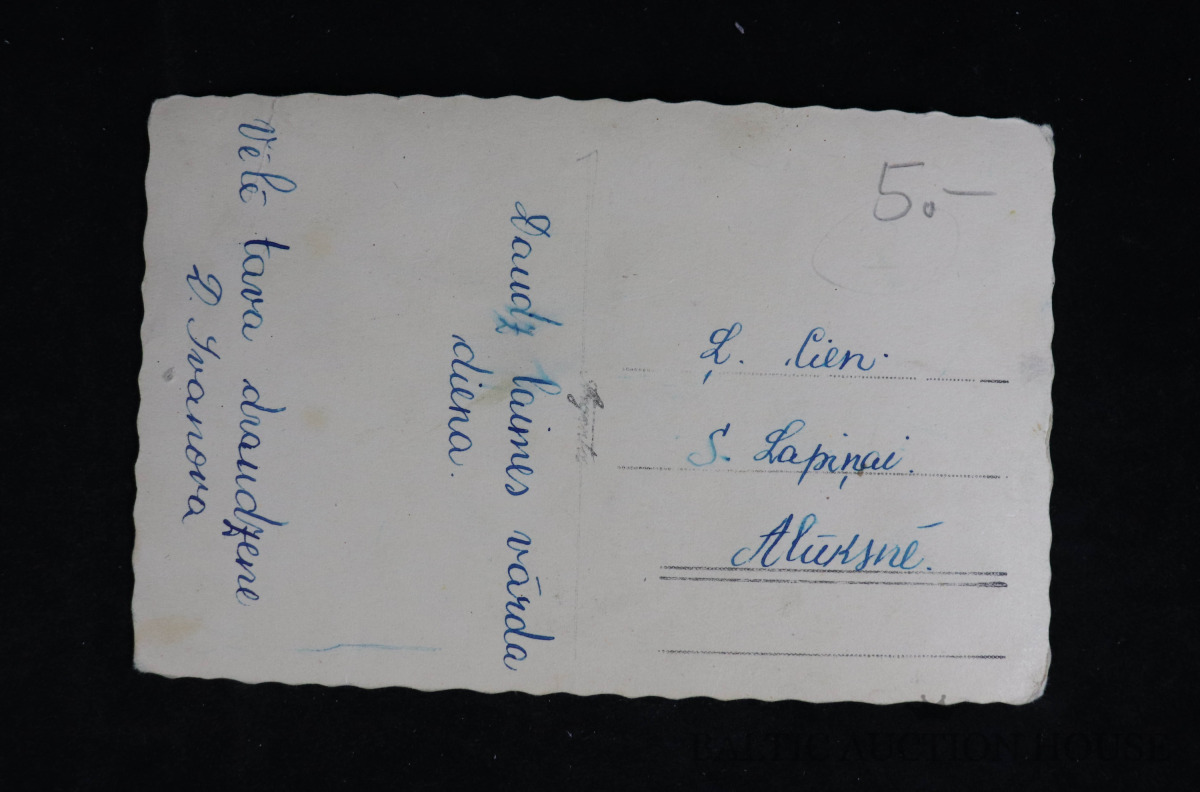 Daudz laimes vārda
diena.
Vēlē tava draudzene
D. Ivanova
5.-
Ļ. Cien.
S. Lapiņai.
Alūksnē.
BALTIC AUCTION HOUSE